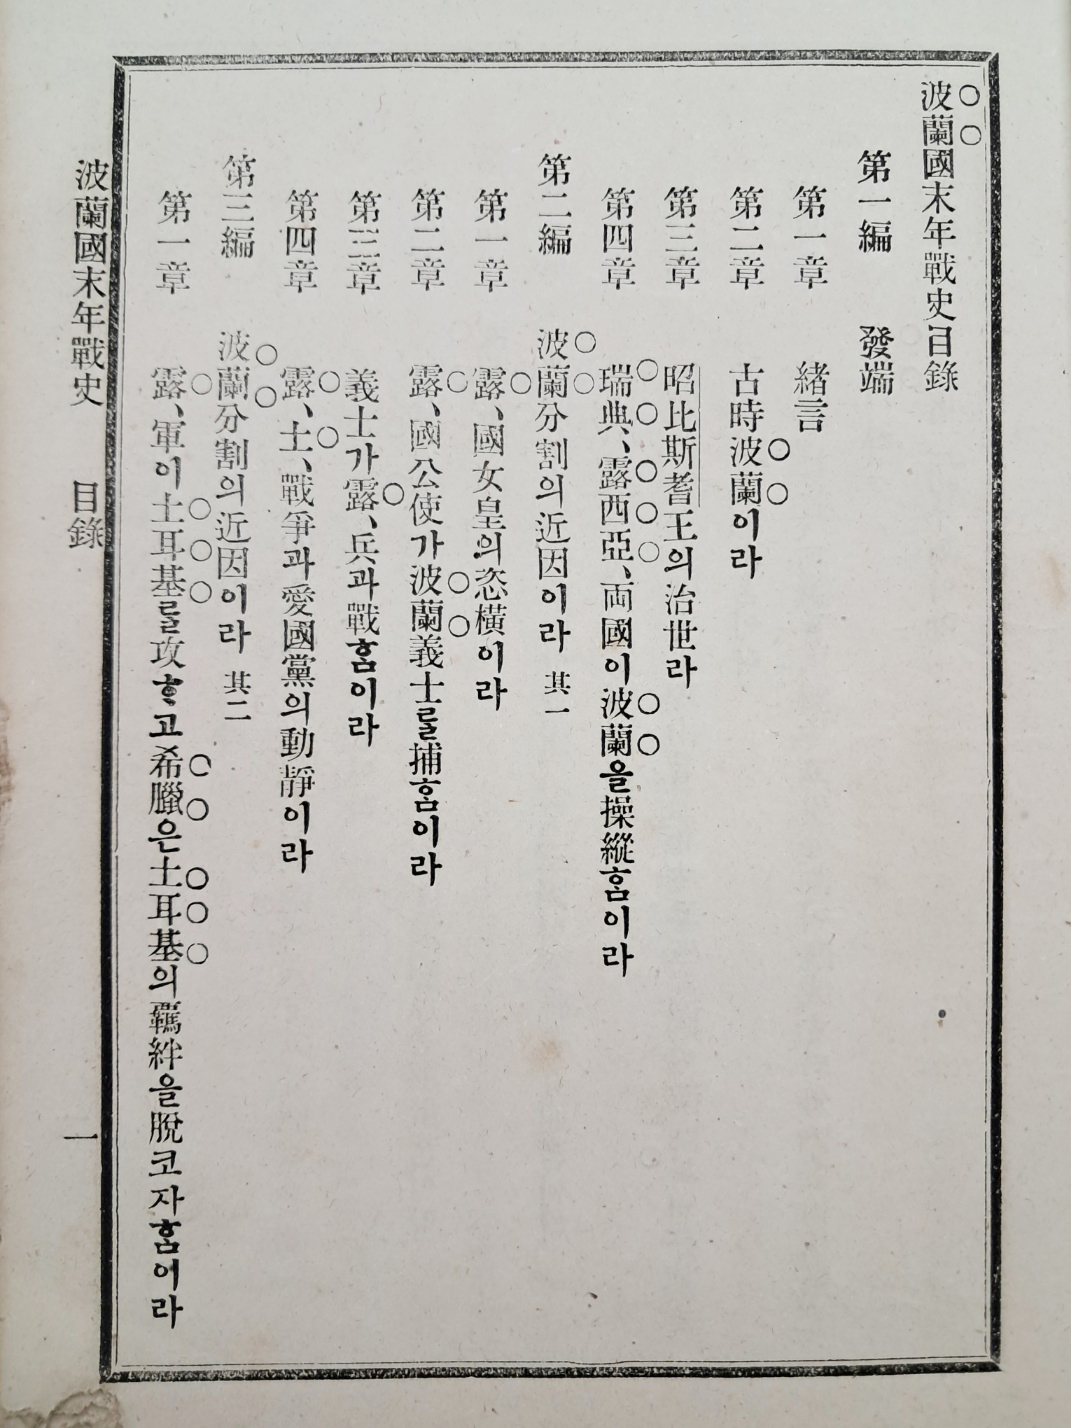 波蘭國末年戰史目錄
第一編 發端
第一章 緖言
第二章 古時波蘭이라
第三章 昭比斯耆王의治世라
第四章 瑞典、露西亞、両國이波蘭을操縱홈이라
第二編 波蘭分割의近因이라 其一
第一章 露、國女皇의恣橫이라
第二章 露、國公使가波蘭義士를捕홈이라
第三章 義士가露、兵과戰홈이라
第四章 露、土、戰爭과愛國黨의動靜이라
第三編 波蘭分割의近因이라 其二
第一章 露、軍이土耳基를攻ᄒᆞ고希臘은土耳基의羈絆을脫코자홈이라
波蘭國末年戰史 目錄 一